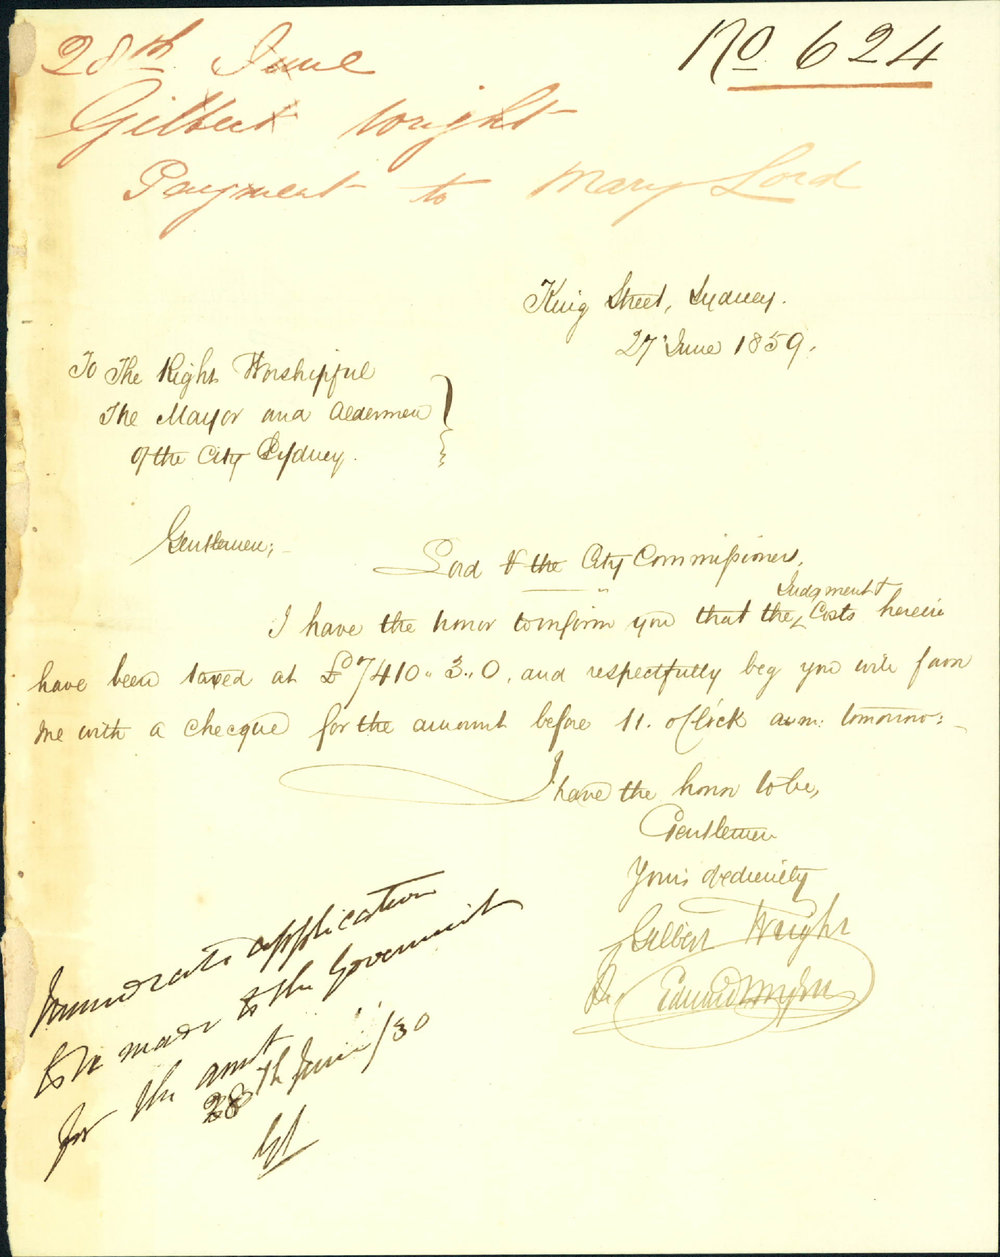 No. 624
28th June
Gilbert Wright
Payment to Mary Lord
King Street, Sydney.
27 June 1859.
To The Right Worshipful
The Mayor and Aldermen
of the City Sydney.
Gentlemen;
Lord v the City Commissioners,
Judgment
I have the honor to inform you that the Costs herein
have been taxed at £7410.. 3.. 0, and respectfully beg you will favor
me with a checque for the amount before 11. o'Clock a.m. tomorrow:
I have the honor to be,
Gentlemen
Yours obediently
Gilbert Wright
Per Edward
Immediate application
to be made to the Government
for the amt
28th June